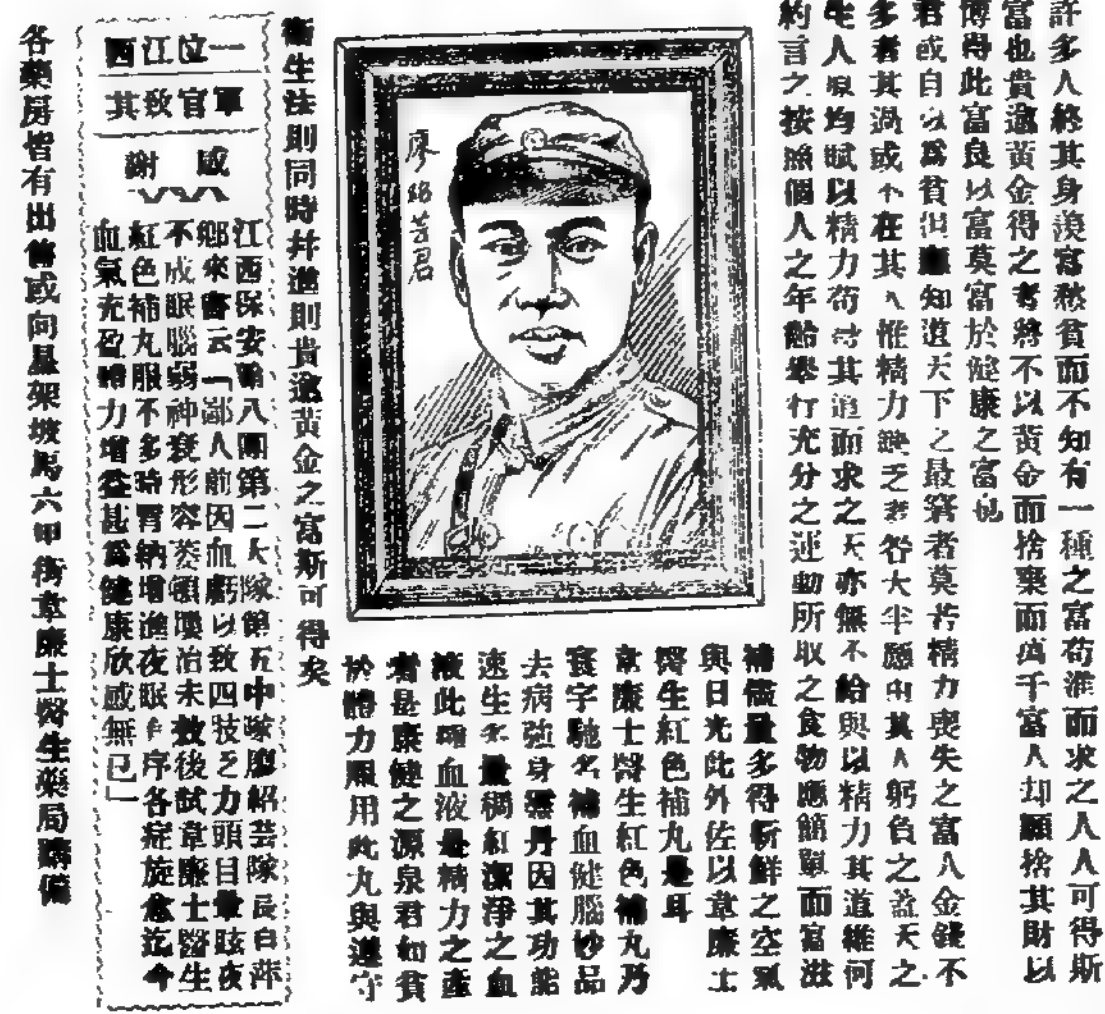 許多人終其身羨富愁貧而不知有一種之富苟準而求之人人可得斯
富也貴逾黃金得之者將不以黃金而捨棄而萬千富人却願捨其財以
博得此富良以富莫富於健康之富也
君或自以為貧但應知道天下之最窮者莫若精力喪失之富人金錢不
多者其過或不在其人惟精力缺乏者咎大半應由其人躬負之蓋天之
生人原均賦以精力苟得其道而求之天亦無不給與以精力其道維何
約言之按照個人之年齡舉行充分之運動所取之食物應簡單而富滋
補儘量多得新鮮之空氣
與日光此外佐以韋廉士
醫生紅色補丸是耳
韋廉士醫生紅色補丸乃
寰宇馳名補血健腦妙品
去病強身靈丹因其功能
速生多量稠紅潔淨之血
液此種血液是精力之產
者是康健之源泉君如貧
於體力服用此丸與遵守
衛生法則同時并進則貴逾黃金之富斯可得矣
廖紹芸君
一位江西
軍官致其
感謝
江西保安第八團第二大隊第五中隊廖紹芸隊長自萍
鄉來書云「鄙人前因血虧以致四肢乏力頭目暈眩夜
不成眠腦弱神衰形容萎頓屢治未效後試韋廉士醫生
紅色補丸服不多時胃納增進夜眠有序各症旋愈迄今
血氣充盈體力增益甚為健康欣感無已」
各藥房皆有出售或向星架坡馬六甲街韋廉士醫生藥局購備